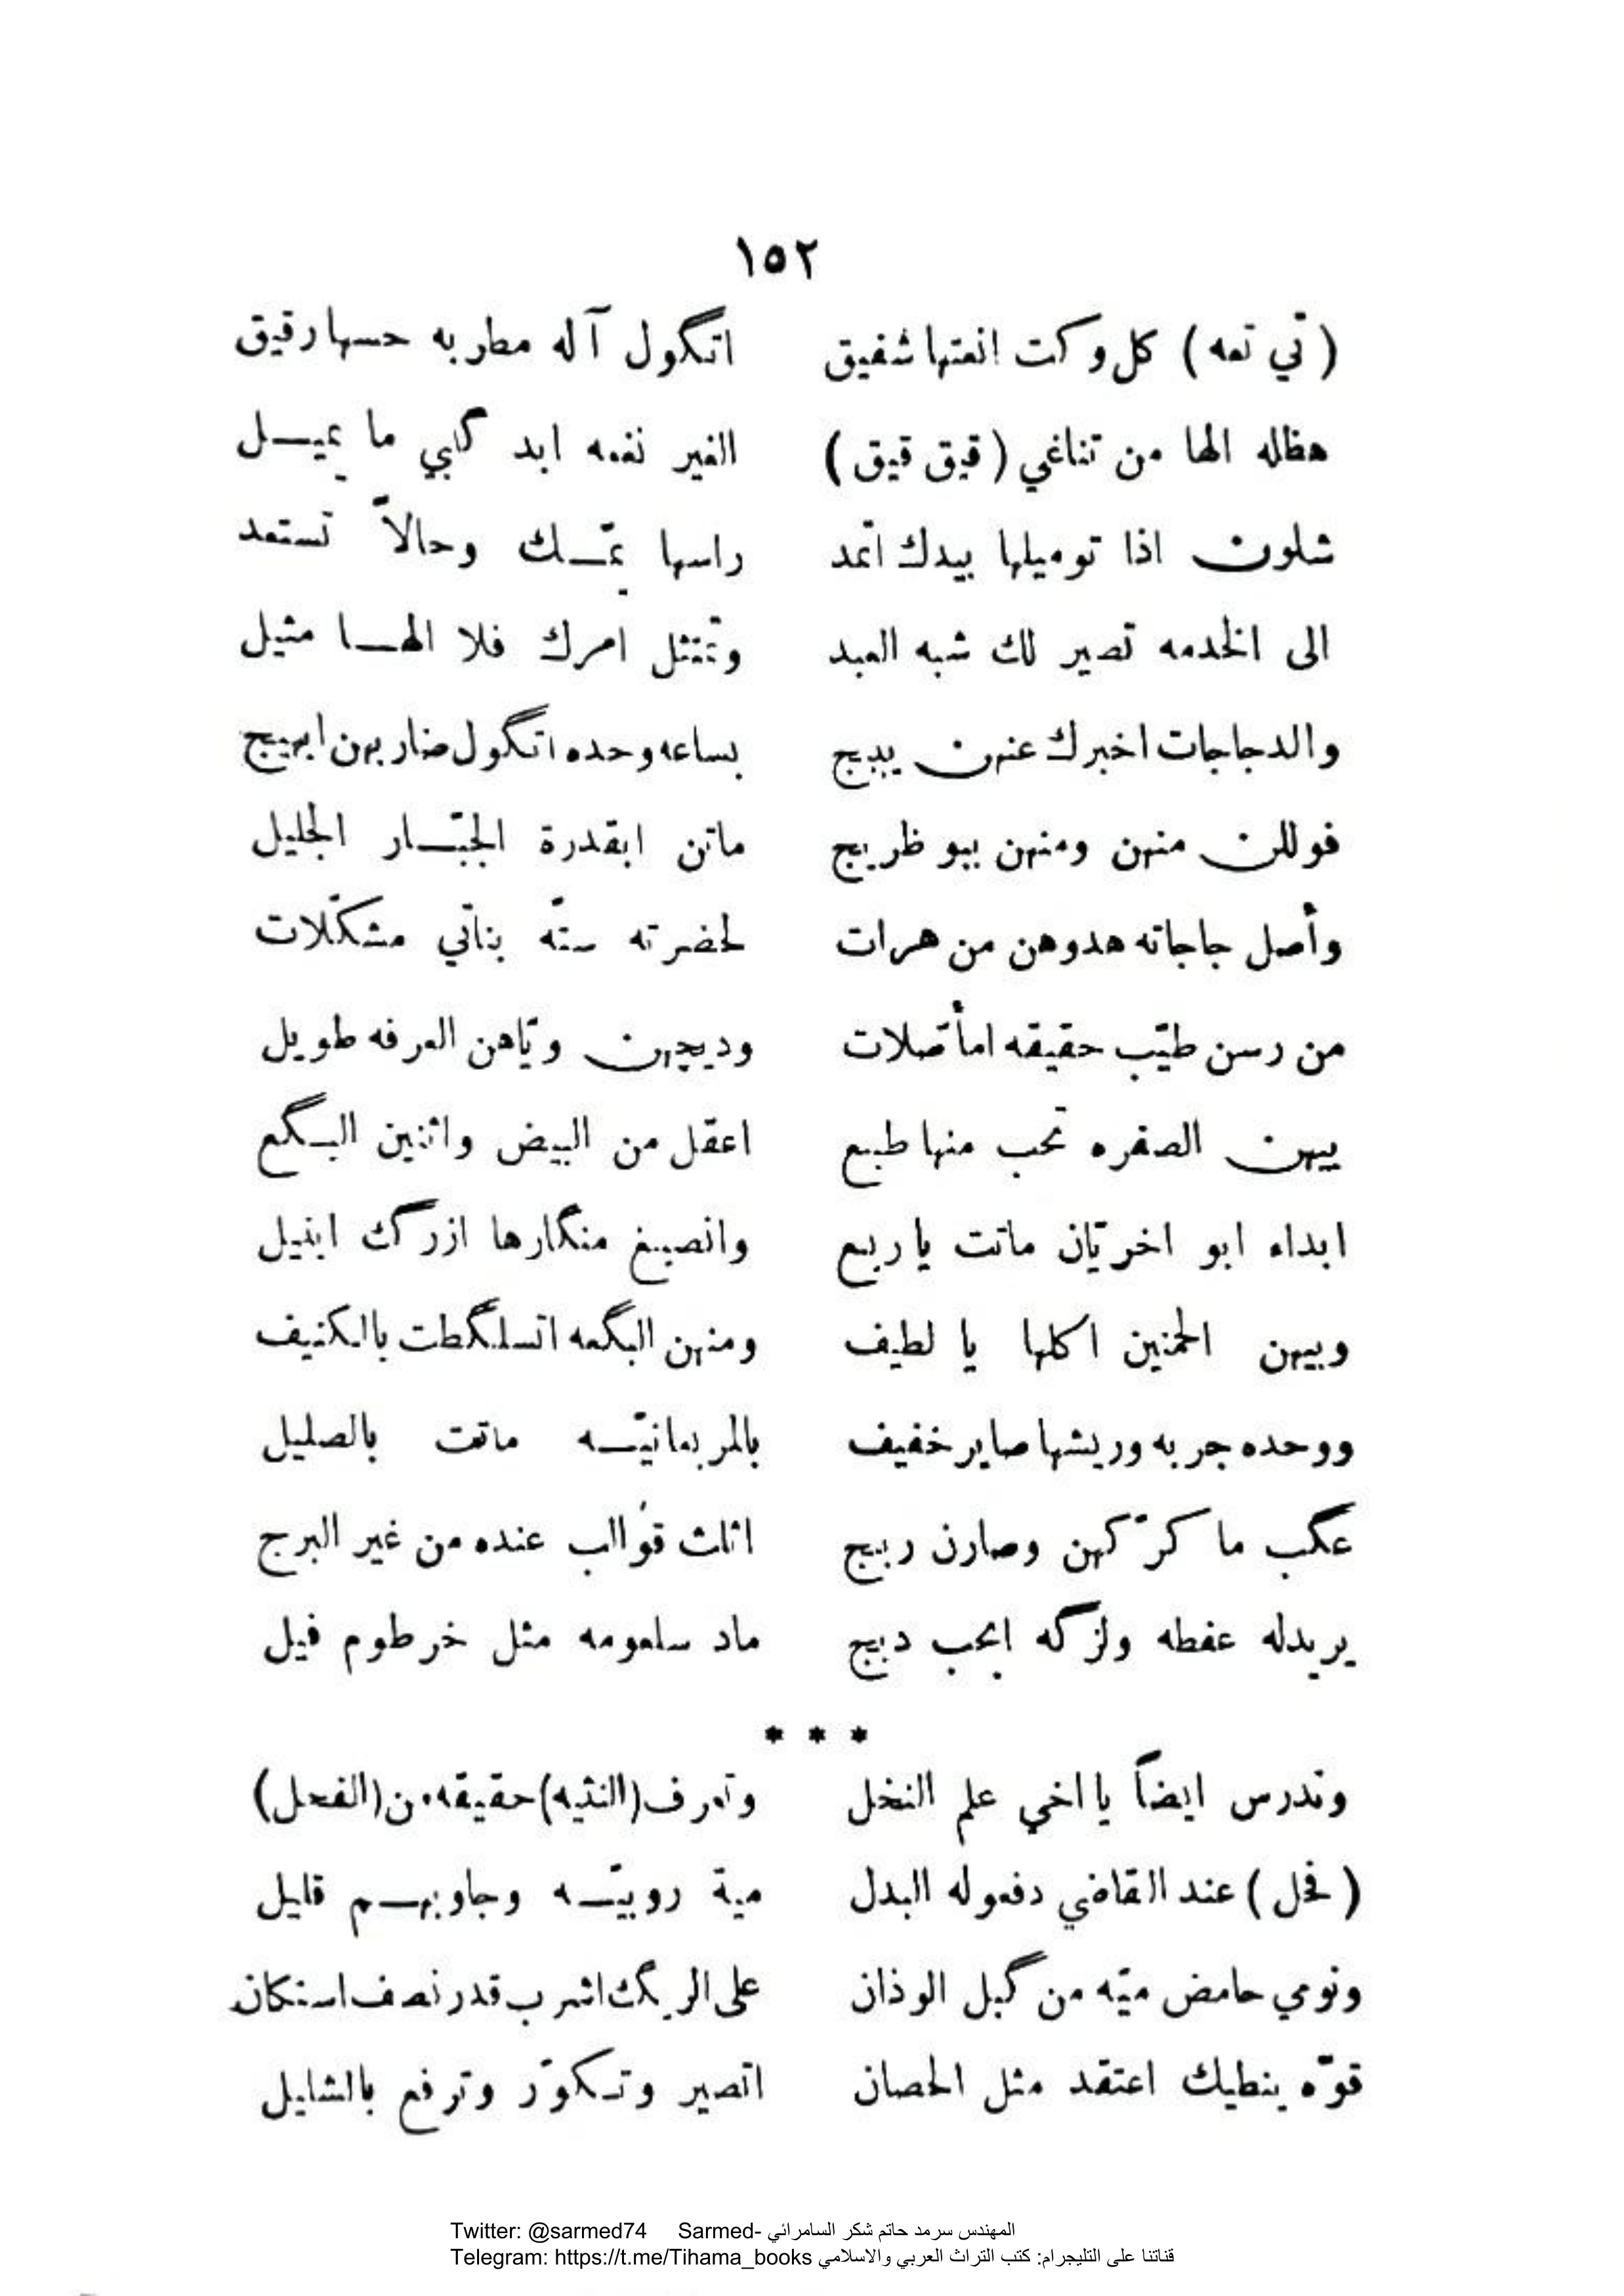 ١٥٢
(تي تعه) كل وكت انعتها شفيق اتگول آله مطربه حسها رقيق
هظاله الها من تناغي (قيق قيق) الغير نغمه ابد گلبي ما يميـــل
شلون اذا توميلها بيدك اتمد راسها يمّـــك وحالاً تستعد
الى الخدمه تصير لك شبه العبد وتمتثل امرك فلا الهـــا مثيل
والدجاجات اخبرك عنهن يديج بساعه وحده اتگول ضاربهن ابهيج
فوللن منهن ومنهن ببو ظريج ماتن ابقدرة الجبّـــار الجليل
وأصل جاجاته هدوهن من هرات لحضرته ستّه بناتي مشكّلات
من رسن طيّب حقيقه امأصّلات وديچهن ويّاهن العرفه طويل
بيهن الصفره تحب منها طبع اعقل من البيض واثنين البـگع
ابداء ابو اخريّان ماتت يا ربع وانصبغ منگارها ازرگ ابنيل
وبيهن الحمنين اكلها يا لطيف ومنهن البگعه اتسلگطت بالكنيف
ووحده جربه وريشها صاير خفيف بالمربعانيّـــه ماتت بالصليل
عگب ما كرّكهن وصارن ربيج اثلث قوالب عنده من غير البرج
يريدله عفطه ولزگه ابحب دبج ماد سلعومه مثل خرطوم فيل
* * *
وتدرس ايضاً يا اخي علم النخل وتعرف (النثيه) حقيقه من (الفحل)
(فحل) عند القاضي دفعوله البدل مية روبيّـــه وجاوبهـــم قليل
ونومي حامض ميّه من گبل الوذان على الريگ اشرب قدر نصف استكان
قوّه ينطيك اعتقد مثل الحصان اتصير وتـكوّر وترفع بالشليل
Twitter: @sarmed74 Sarmed- المهندس سرمد حاتم شكر السامرائي
Telegram: https://t.me/Tihama_books قناتنا على التليجرام: كتب التراث العربي والاسلامي